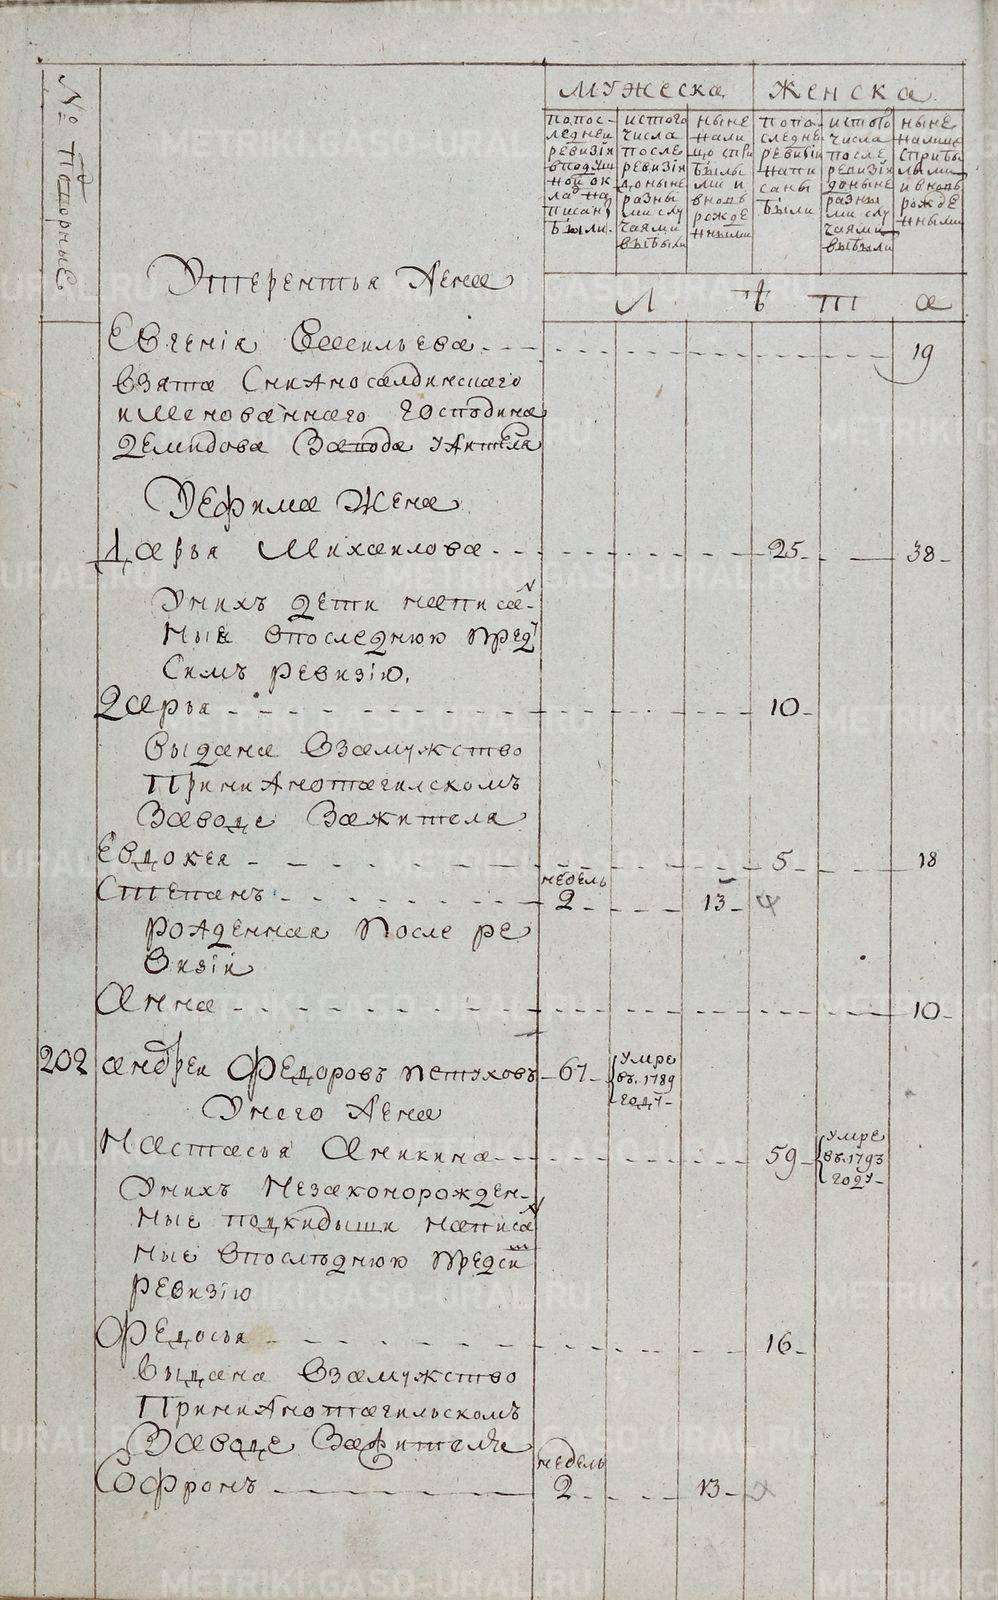 № дворные
МУЖЕСКА
ЖЕНСКА
попос-
ледней
ревизіи
вподуш
ной ок
лад на
писан
были.
истого
числа
после
ревизіи
доныне
разны
ми слу
чаями
выбыли
ныне
нали
цо спри
былы
ми и
вновь
рожде
нными
попо-
следне
ревизіи
напи
саны
были
истого
числа
после
ревизіи
доныне
разны
ми слу
чаями
выбыли
ныне
налицо
сприбы
лыми
ивновь
рожде
нными
Утерентья Жена
Л Ѣ Т А
Евгенія Васильева 19
взята Снижносалдинскаго
имянованнаго господина
Демидова Завода ужителя
Уефима Жена
Дарья Михаилова 25 38
Унихъ дети написа-
ные впоследнюю пред
Симъ ревизію.
Дарья 10
выдана взамужство
Принижнотагилскомъ
Заводе Зажителя
Евдокея 5 18
недель
Степанъ 2 13
рожденная После ре
визіи
Анна 10
202 андреи Федоровъ петуховъ 67 умре
въ 1789
году
Унего Жена
Настасья Аникина 59 умре
въ 1793
году
Унихъ Незаконорожден-
ные подкидыши написа
ные впослѣднюю предси
ревизію
Федосья 16
выдана взамужство
Принижнотагильскомъ
Заводе Зажителя
недель
Софронъ 2 13
METRIKI.GASO-URAL.RU